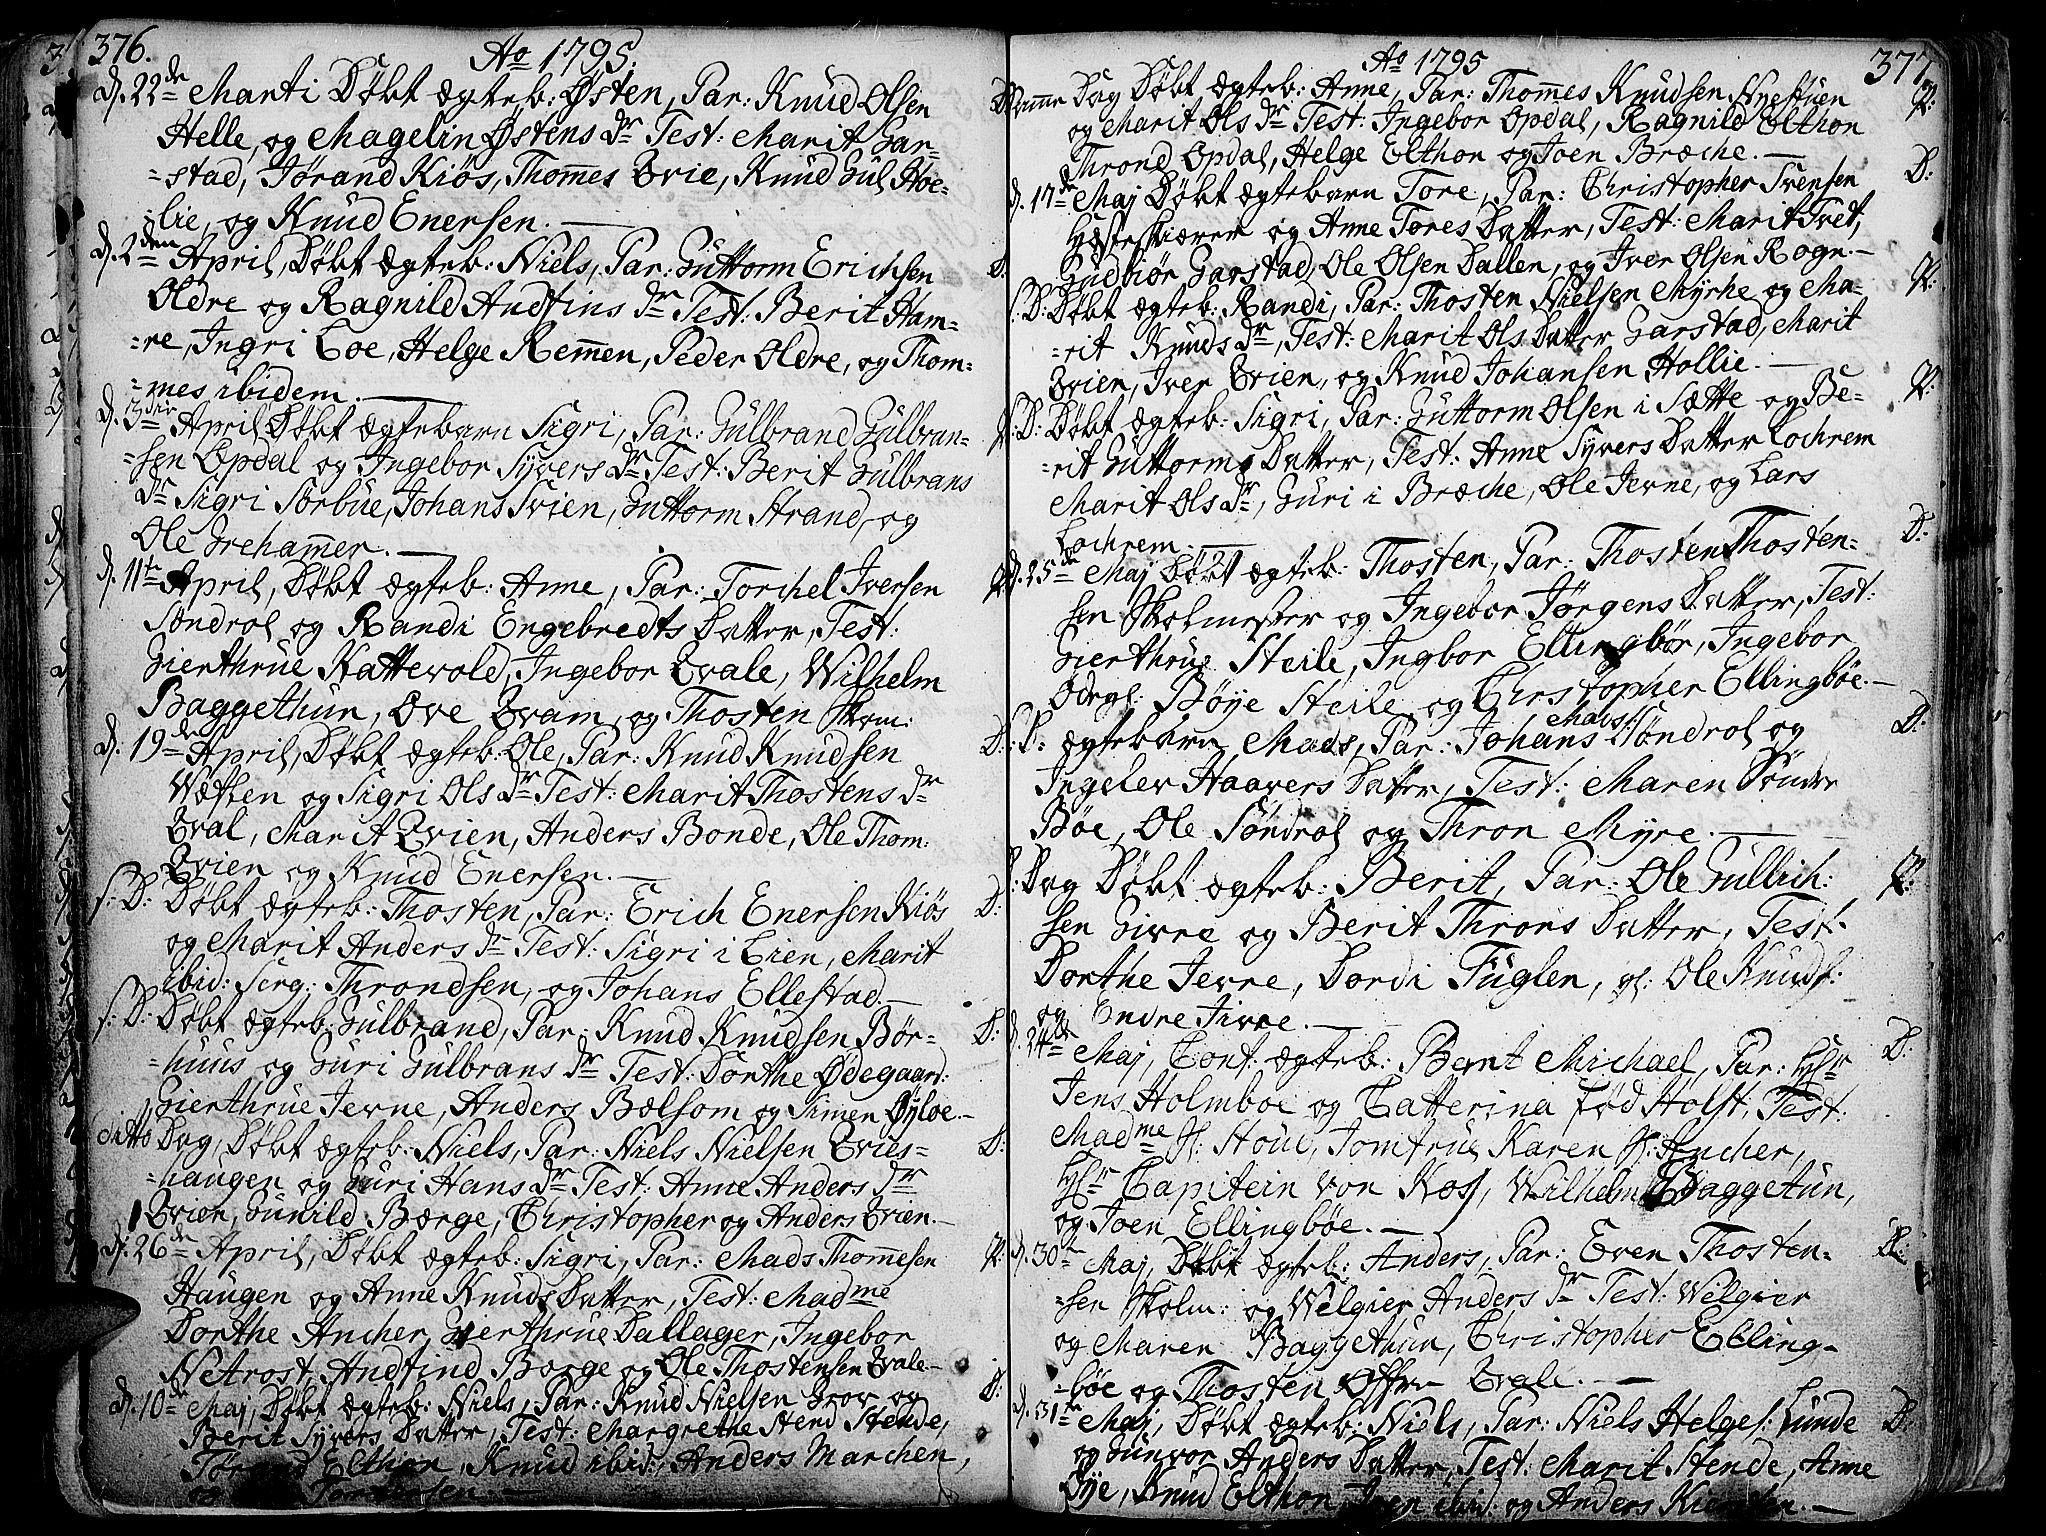 376.
Ao 1795.
d. 22de Marti Døbt ægteb: Østen, Par: Knud Olsen
Helle, og Magelin Østens Dr Test: Marit Gar=
=stad, Jørand Kiøs, Thommes Qvie, Knud Gul Hoe=
=lie, og Knud Enersen.
d. 2den April, Døbt ægteb: Niels, Par: Guttorm Erichsen
Oldre og Ragnild Andfins Dr Test: Berit Ham=
=re, Ingri Loe, Helge Remmen, Peder Oldre, og Thom=
=mes ibidem.
d. 3die April Døbt ægtebarn Sigri, Par: Gulbrand Gulbran=
=sen Opdal og Ingebor Syvers Dr Test: Berit Gulbrans
Dr Sigri Sorbue, Johans Svien, Guttorm Strand, og
Ole Grehammer.
d. 11te April, Døbt ægteb: Anne, Par: Torchel Iversen
Søndrol og Randi Engebredts Datter, Test:
Gierthrue Kattevold, Ingebor Qvale, Wilhelm
Baggethun, Ove Qvam, og Thosten Skom:
d. 19de April, Døbt ægteb: Ole, Par: Knud Knudsen
Wætten og Sigri Ols Dr Test: Marit Thostens Dr
Qval, Marit Qvien, Anders Bonde, Ole Thom:
Qvien og Knud Enersen.
S: D: Døbt ægteb: Thosten, Par: Erich Enersen Kiøs
og Marit Anders Dr Test: Sigri i Lien, Marit
ibid: Serg: Throndsen, og Johans Ellestad.
S: D: Døbt ægteb: Gulbrand, Par: Knud Knudsen Bør=
=huus og Guri Gulbrans Dr Test: Dorthe Ødegaard:
Gierthrue Jevne, Anders Bælsom og Simen Øyloe.
ditto Dag, Døbt ægteb: Niels, Par: Niels Nielsen Qvies=
=haugen og Guri Hans Dr Test: Anne Anders Dr
Qvien, Gunild Børge, Christopher og Anders Qvien.
d. 26de April, Døbt ægteb: Sigri, Par: Mads Thommesen
Haugen og Anne Knuds Datter, Test: Madme
Dorthe Ancher, Gierthrue Dallager, Ingebor
Netrost, Andfind Børge og Ole Thostensen Qvale.
d. 10de Maj, Døbt ægteb: Niels, Par: Knud Nielsen Grov og
Berit Syvers Datter, Test: Margrethe Stende,
Elthon, Knud ibid:, Anders Marchen,
og
377
Ao 1795
Samme Dag Døbt ægteb: Anne, Par: Thommes Knudsen Nnestuen
og Marit Ols Dr Test: Ingebor Opdal, Ragnild Elthon
Thrond Opdal, Helge Elthon og Joen Bræche.
d. 17de Maj Døbt ægtebarn Tore, Par: Christopher Svensen
Hesteskiærer og Anne Tores Datter, Test: Marit Tvet,
Gudbiør Garstad, Ole Olsen Dallen, og Iver Olsen Rogn.
S: D: Døbt ægteb: Randi, Par: Thosten Nielsen Myrhe og Ma=
=rit Knuds Dr, Test: Marit Ols Datter Garstad, Marit
Qvien, Iver Qvien, og Knud Johansen Hollie.
S: D: Døbt ægteb: Sigri, Par: Guttorm Olsen i Sætte og Be=
=rit Guttorms Datter, Test: Anne Syvers Datter Lochrem
Marit Ols Dr, Guri i Bræche, Ole Jevne, og Lars
Lochrem.
d. 25de Maj Døbt ægteb: Thosten, Par: Thosten Thosten=
sen Skolmester og Ingebor Jørgens Datter, Test:
Gierthrue Steile, Ingbor Ellingbør, Ingebor
Ødegl: Bøye Steile og Christopher Ellingbøe.
S: D: ægtebarn Mads, Par: Johans Mads: Søndrol og
Ingelev Haavers Datter, Test: Maren Søndre
Bøe, Ole Søndrol og Thron Myre.
D: Dag Døbt ægteb: Berit, Par: Ole Gullich:
sen Givre og Berit Throns Datter, Test:
Dorthe Jevne, Dordi Fuglen, gl: Ole Knuds:
og Endre Jivre.
d. 24de Maj, Conf: ægteb: Bernt Michael, Par: Hr
Jens Holmboe og Catterina fød Holst, Test:
Madme Sl: Houe, Jomfrue Karen Sl: Ancher,
Hr Capitein von Kos, Wilhelm Baggetun,
og Joen Ellingbøe.
d. 30te Maj, Døbt ægteb: Anders, Par: Even Thosten=
=sen Skolm: og Welgier Anders Dr Test: Welgier
og Maren Baggethun, Christopher Elling=
=bøe og Thosten Qvale.
d. 31te Maj, Døbt ægteb: Niels, Par: Niels Helges: Lunde
og Gunvor Anders Datter, Test: Marit Stende, Anne
Øye, Knud Elthon, Iven ibid: og Anders